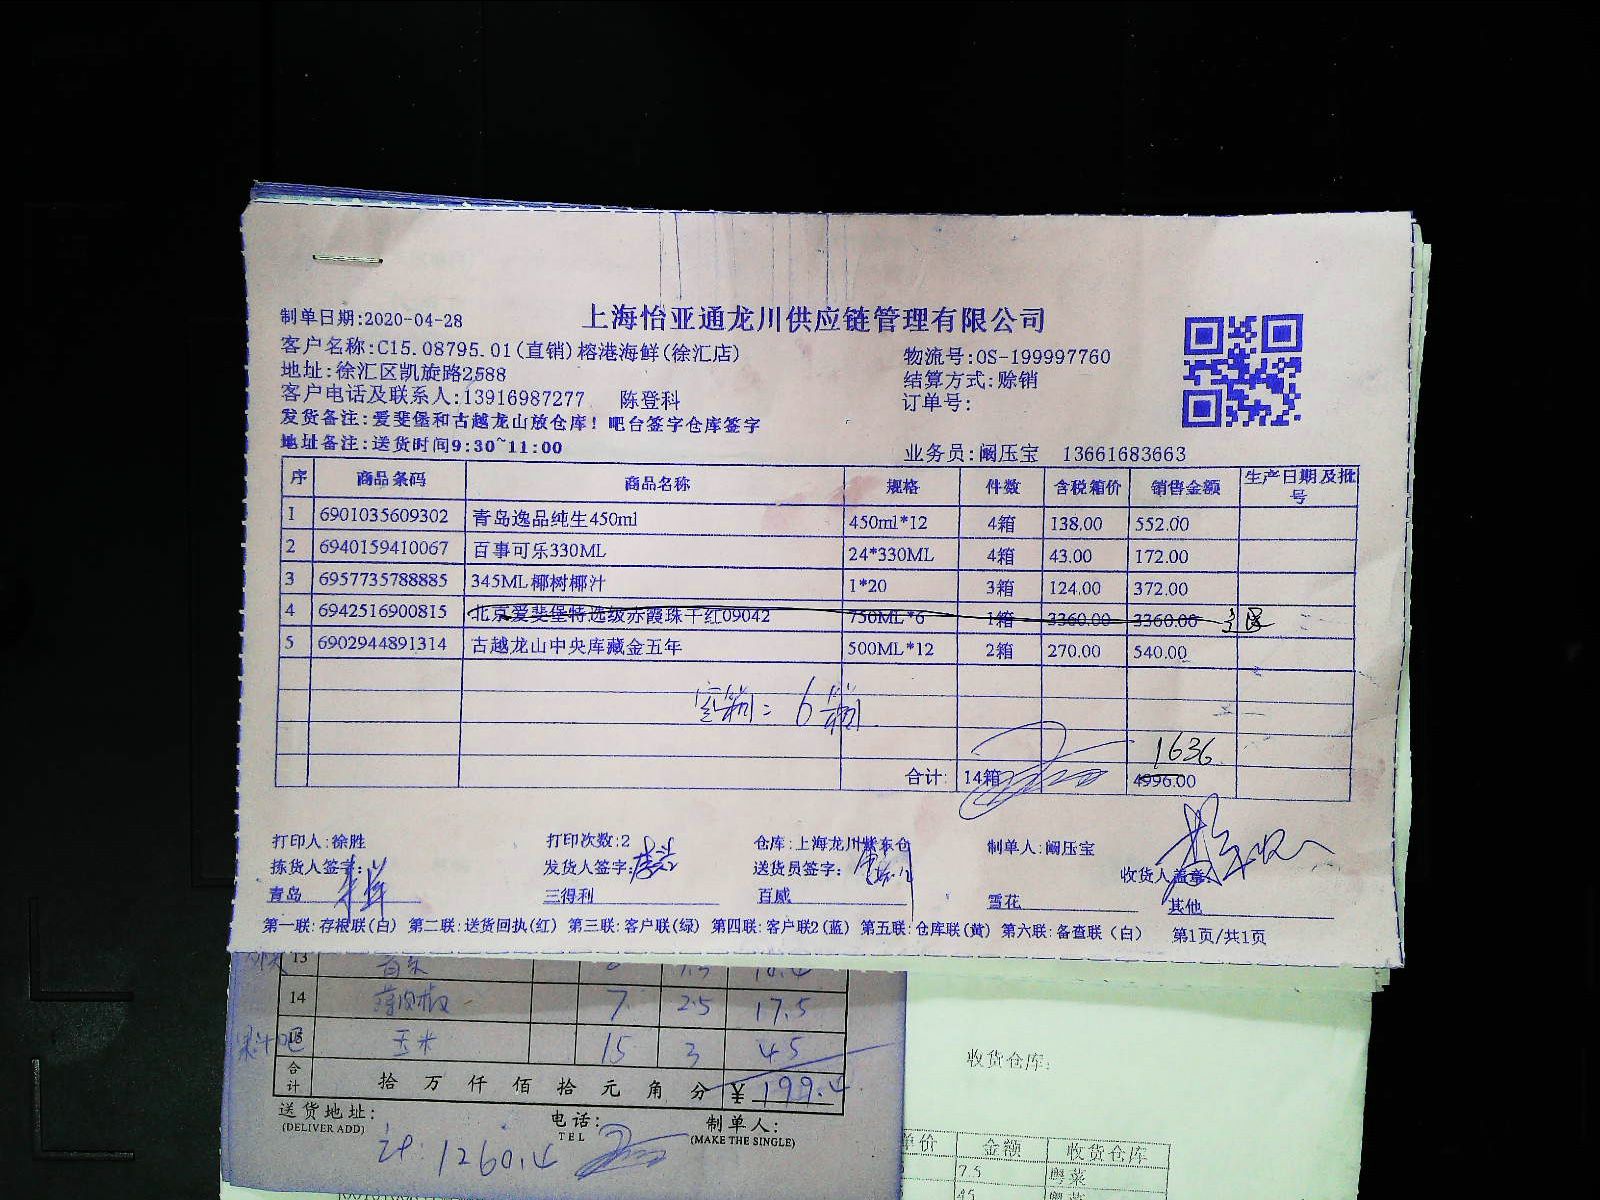 上海怡亚通龙川供应链管理有限公司
制单日期:2020-04-28
客户名称:C15.08795.01(直销)榕港海鲜(徐汇店)
物流号:OS-199997760
地址:徐汇区凯旋路2588
结算方式:赊销
客户电话及联系人:13916987277 陈登科
订单号:
发货备注:爱斐堡和古越龙山放仓库！吧台签字仓库签字
地址备注:送货时间9:30~11:00
业务员:阚压宝 13661683663
序 商品条码 商品名称 规格 件数 含税箱价 销售金额 生产日期及批号
1 6901035609302 青岛逸品纯生450ml 450ml*12 4箱 138.00 552.00
2 6940159410067 百事可乐330ML 24*330ML 4箱 43.00 172.00
3 6957735788885 345ML椰树椰汁 1*20 3箱 124.00 372.00
4 6942516900815 北京爱斐堡特选级赤霞珠干红09042 750ML*6 1箱 3360.00 3360.00
5 6902944891314 古越龙山中央库藏金五年 500ML*12 2箱 270.00 540.00
空箱: 6箱
1636
合计: 14箱 4996.00
打印人:徐胜 打印次数:2 仓库:上海龙川紫东仓 制单人:阚压宝
拣货人签字: 发货人签字: 送货员签字: 收货人盖章:
青岛 三得利 百威 雪花 其他
第一联:存根联(白) 第二联:送货回执(红) 第三联:客户联(绿) 第四联:客户联2(蓝) 第五联:仓库联(黄) 第六联:备查联(白) 第1页/共1页
13
14 薄皮椒 7 2.5 17.5
15 玉米 15 3 45
合计 拾 万 仟 佰 拾 元 角 分 ¥199.4
送货地址: 电话: 制单人:
(DELIVER ADD) TEL (MAKE THE SINGLE)
计:1260.4
收货仓库:
单价 金额 收货仓库
7.5 粤菜